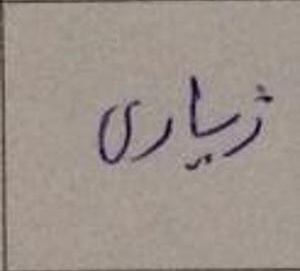 زیباری